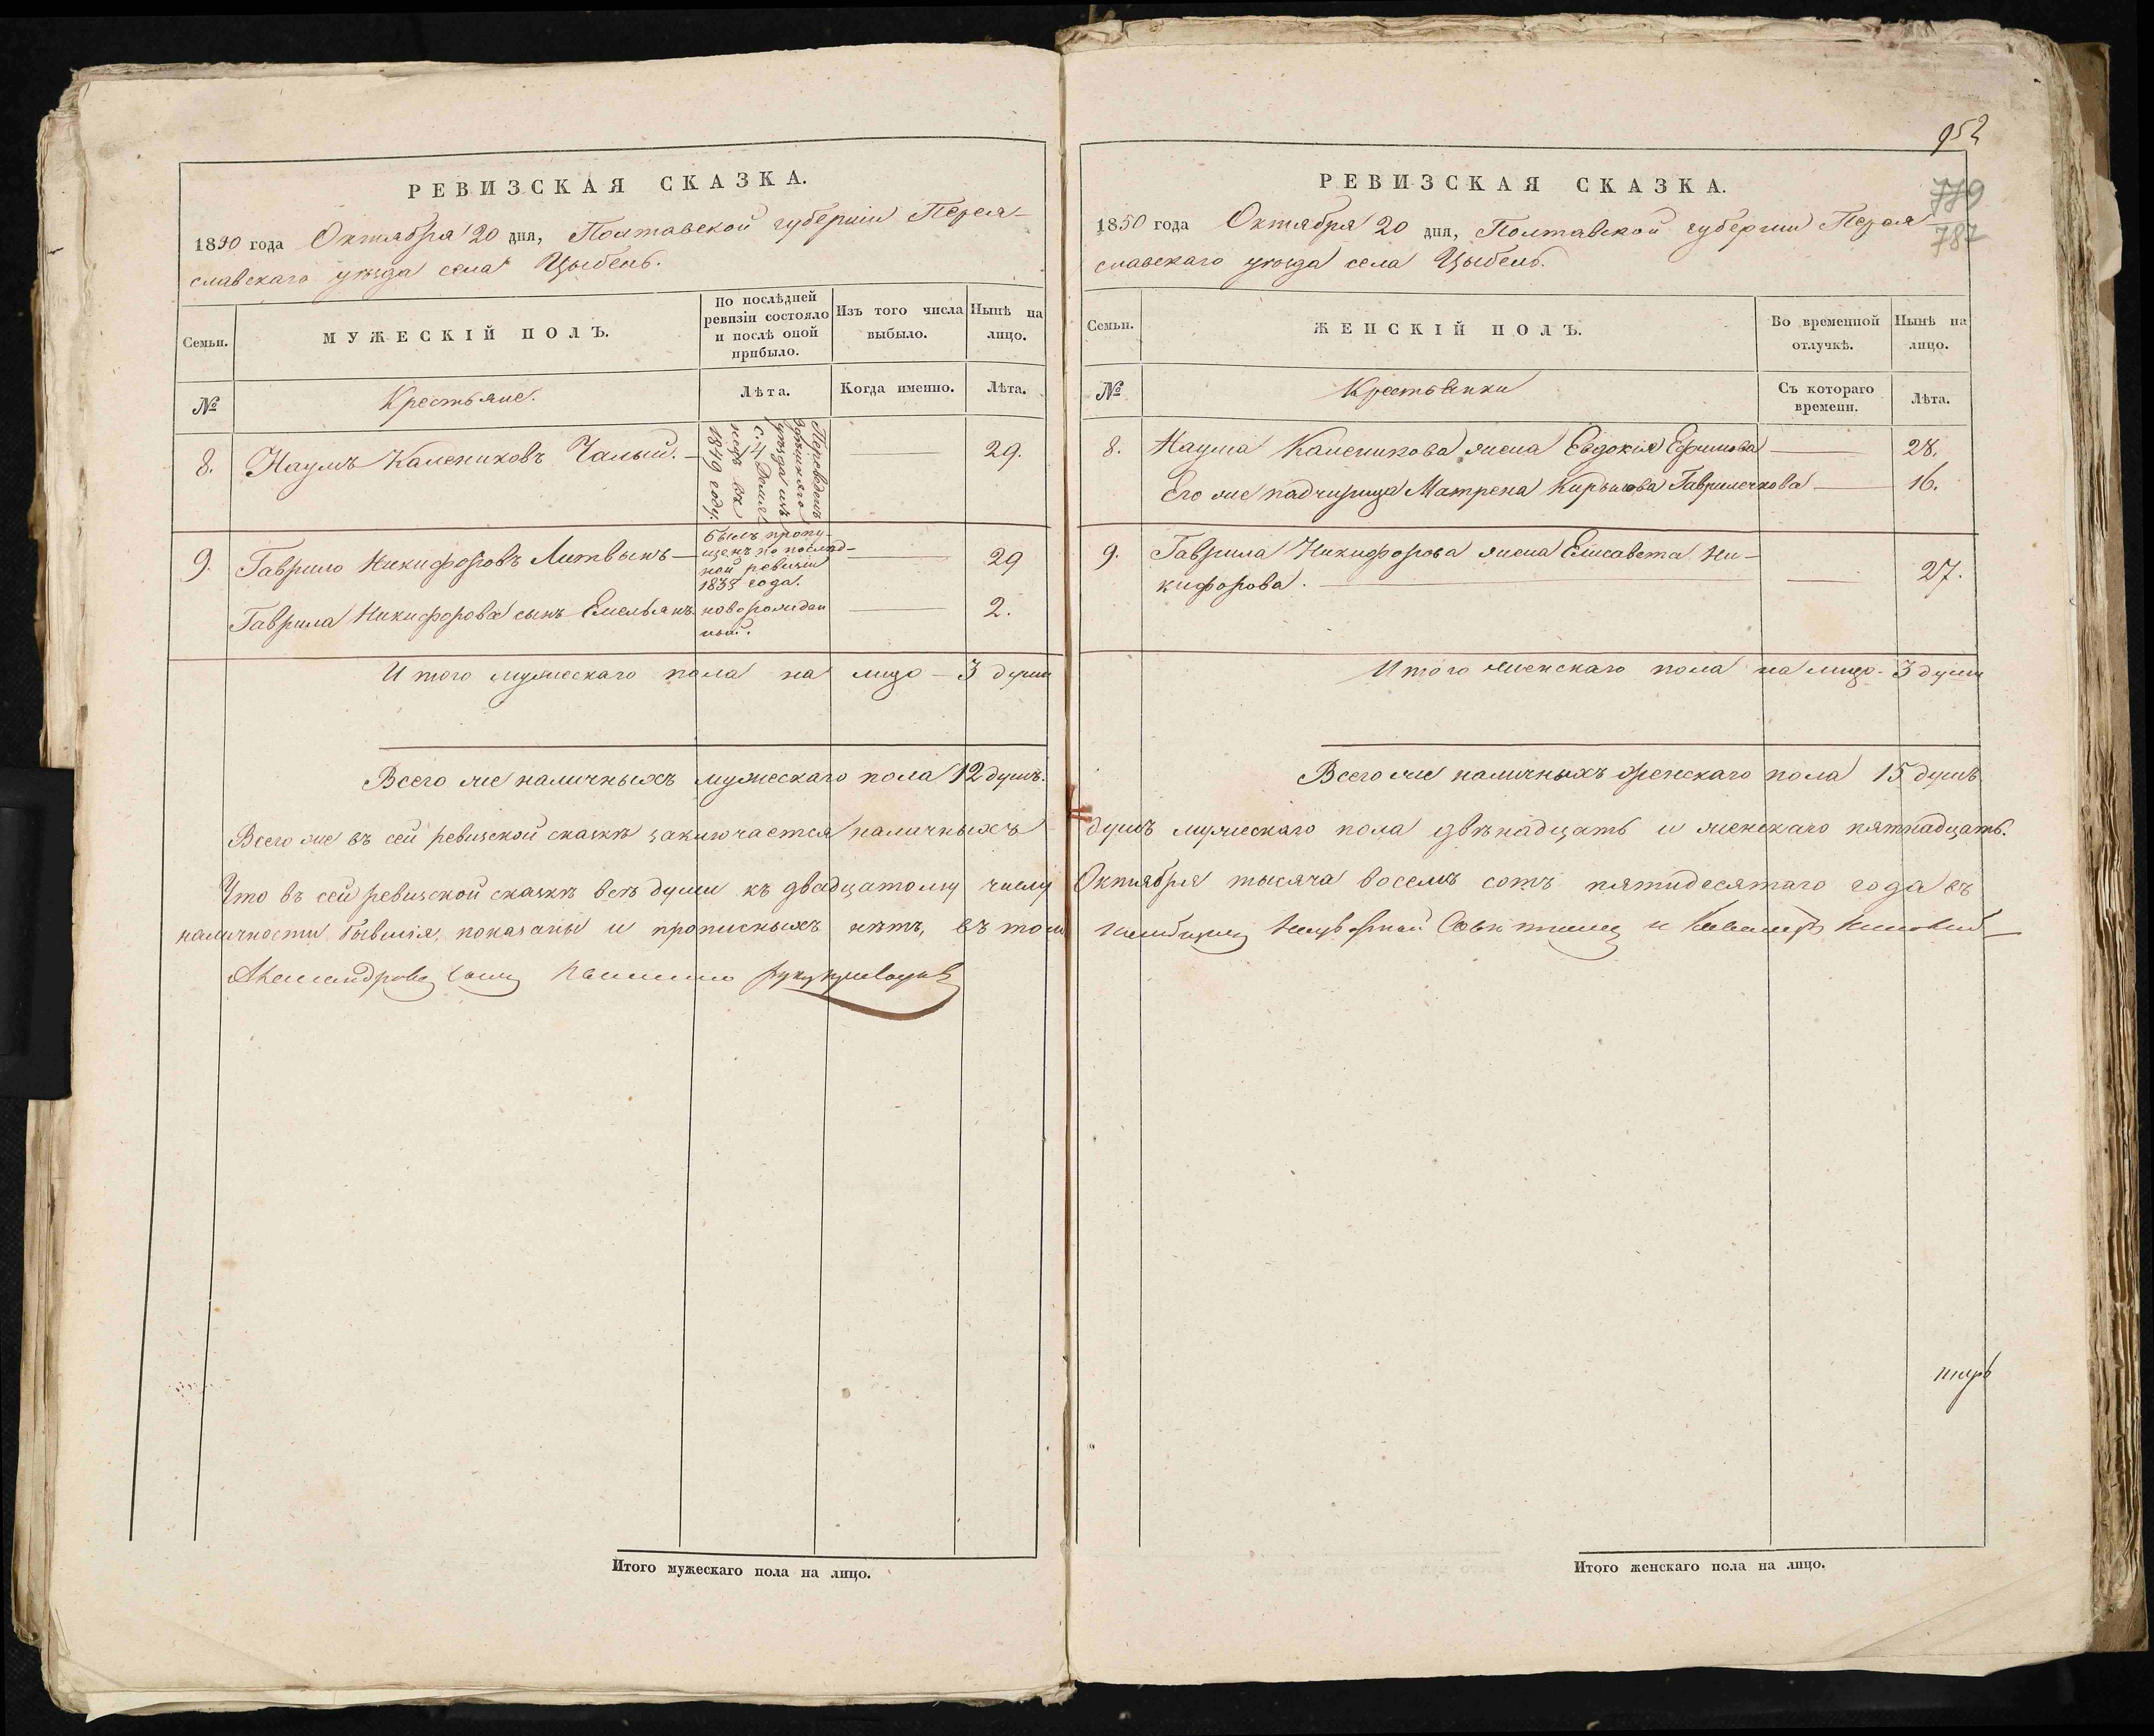 РЕВИЗСКАЯ СКАЗКА.
1850 года Октября 20 дня, Полтавской губерніи Перея-
славскаго уѣзда села Цыбель.
Семьи.
МУЖЕСКІЙ ПОЛЪ.
По послѣдней
ревизіи состояло
и послѣ оной
прибыло.
Изъ того числа
выбыло.
Нынѣ на
лицо.
№
Крестьяне.
Лѣта.
Когда именно.
Лѣта.
8. Наумъ Калениковъ Чалый. — 29.
Переведенъ
уѣзда изъ
1849 году.
9. Гаврило Никифоровъ Литвынъ — 29
Былъ пропу-
щенъ по послѣд-
ней ревизіи
1835 года.
Гаврила Никифорова сынъ Емельянъ. новорожден 2.
ный.
Итого мужескаго пола на лицо — 3 души
Всего же наличныхъ мужескаго пола 12 душъ.
Всего же въ сей ревизской сказкѣ заключается наличныхъ
Что въ сей ревизской сказкѣ всѣ души къ двадцатому числу
наличности бывшія, показаны и прописныхъ нѣтъ, въ томъ
Итого мужескаго пола на лицо.
952
779
787
РЕВИЗСКАЯ СКАЗКА.
1850 года Октября 20 дня, Полтавской губерніи Перея
славскаго уѣзда села Цыбель.
Семьи.
ЖЕНСКІЙ ПОЛЪ.
Во временной
отлучкѣ.
Нынѣ на
лицо.
№
Крестьянки
Съ котораго
времени.
Лѣта.
8. Наума Каленикова жена Евдокія Ефимова — 28.
Его же падчирица Матрена Кирылова Гавриленкова — 16.
9. Гаврила Никифорова жена Елисавета Ни-
кифорова. — 27.
Итого женскаго пола на лицо - 3 души
Всего же наличныхъ женскаго пола 15 душъ
душъ мужескаго пола двѣнадцать и женскаго пятнадцать.
Октября тысяча восемь сотъ пятидесятаго года въ
Итого женскаго пола на лицо.